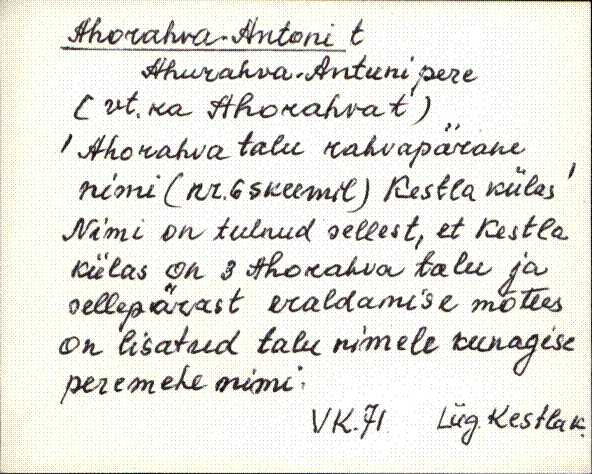 Ahorahva-Antoni t
Ahurahva-Antuni pere
(vt. ka Ahorahva t)
'Ahorahva talu rahvapärane
nimi (nr. 6 skeemil) Kestla külas'
Nimi on tulnud sellest, et Kestla
külas on 3 Ahorahva talu ja
sellepärast eraldamise mõttes
on lisatud talu nimele kunagise
peremehe nimi.
VK. 71 Lüg. Kestla k.